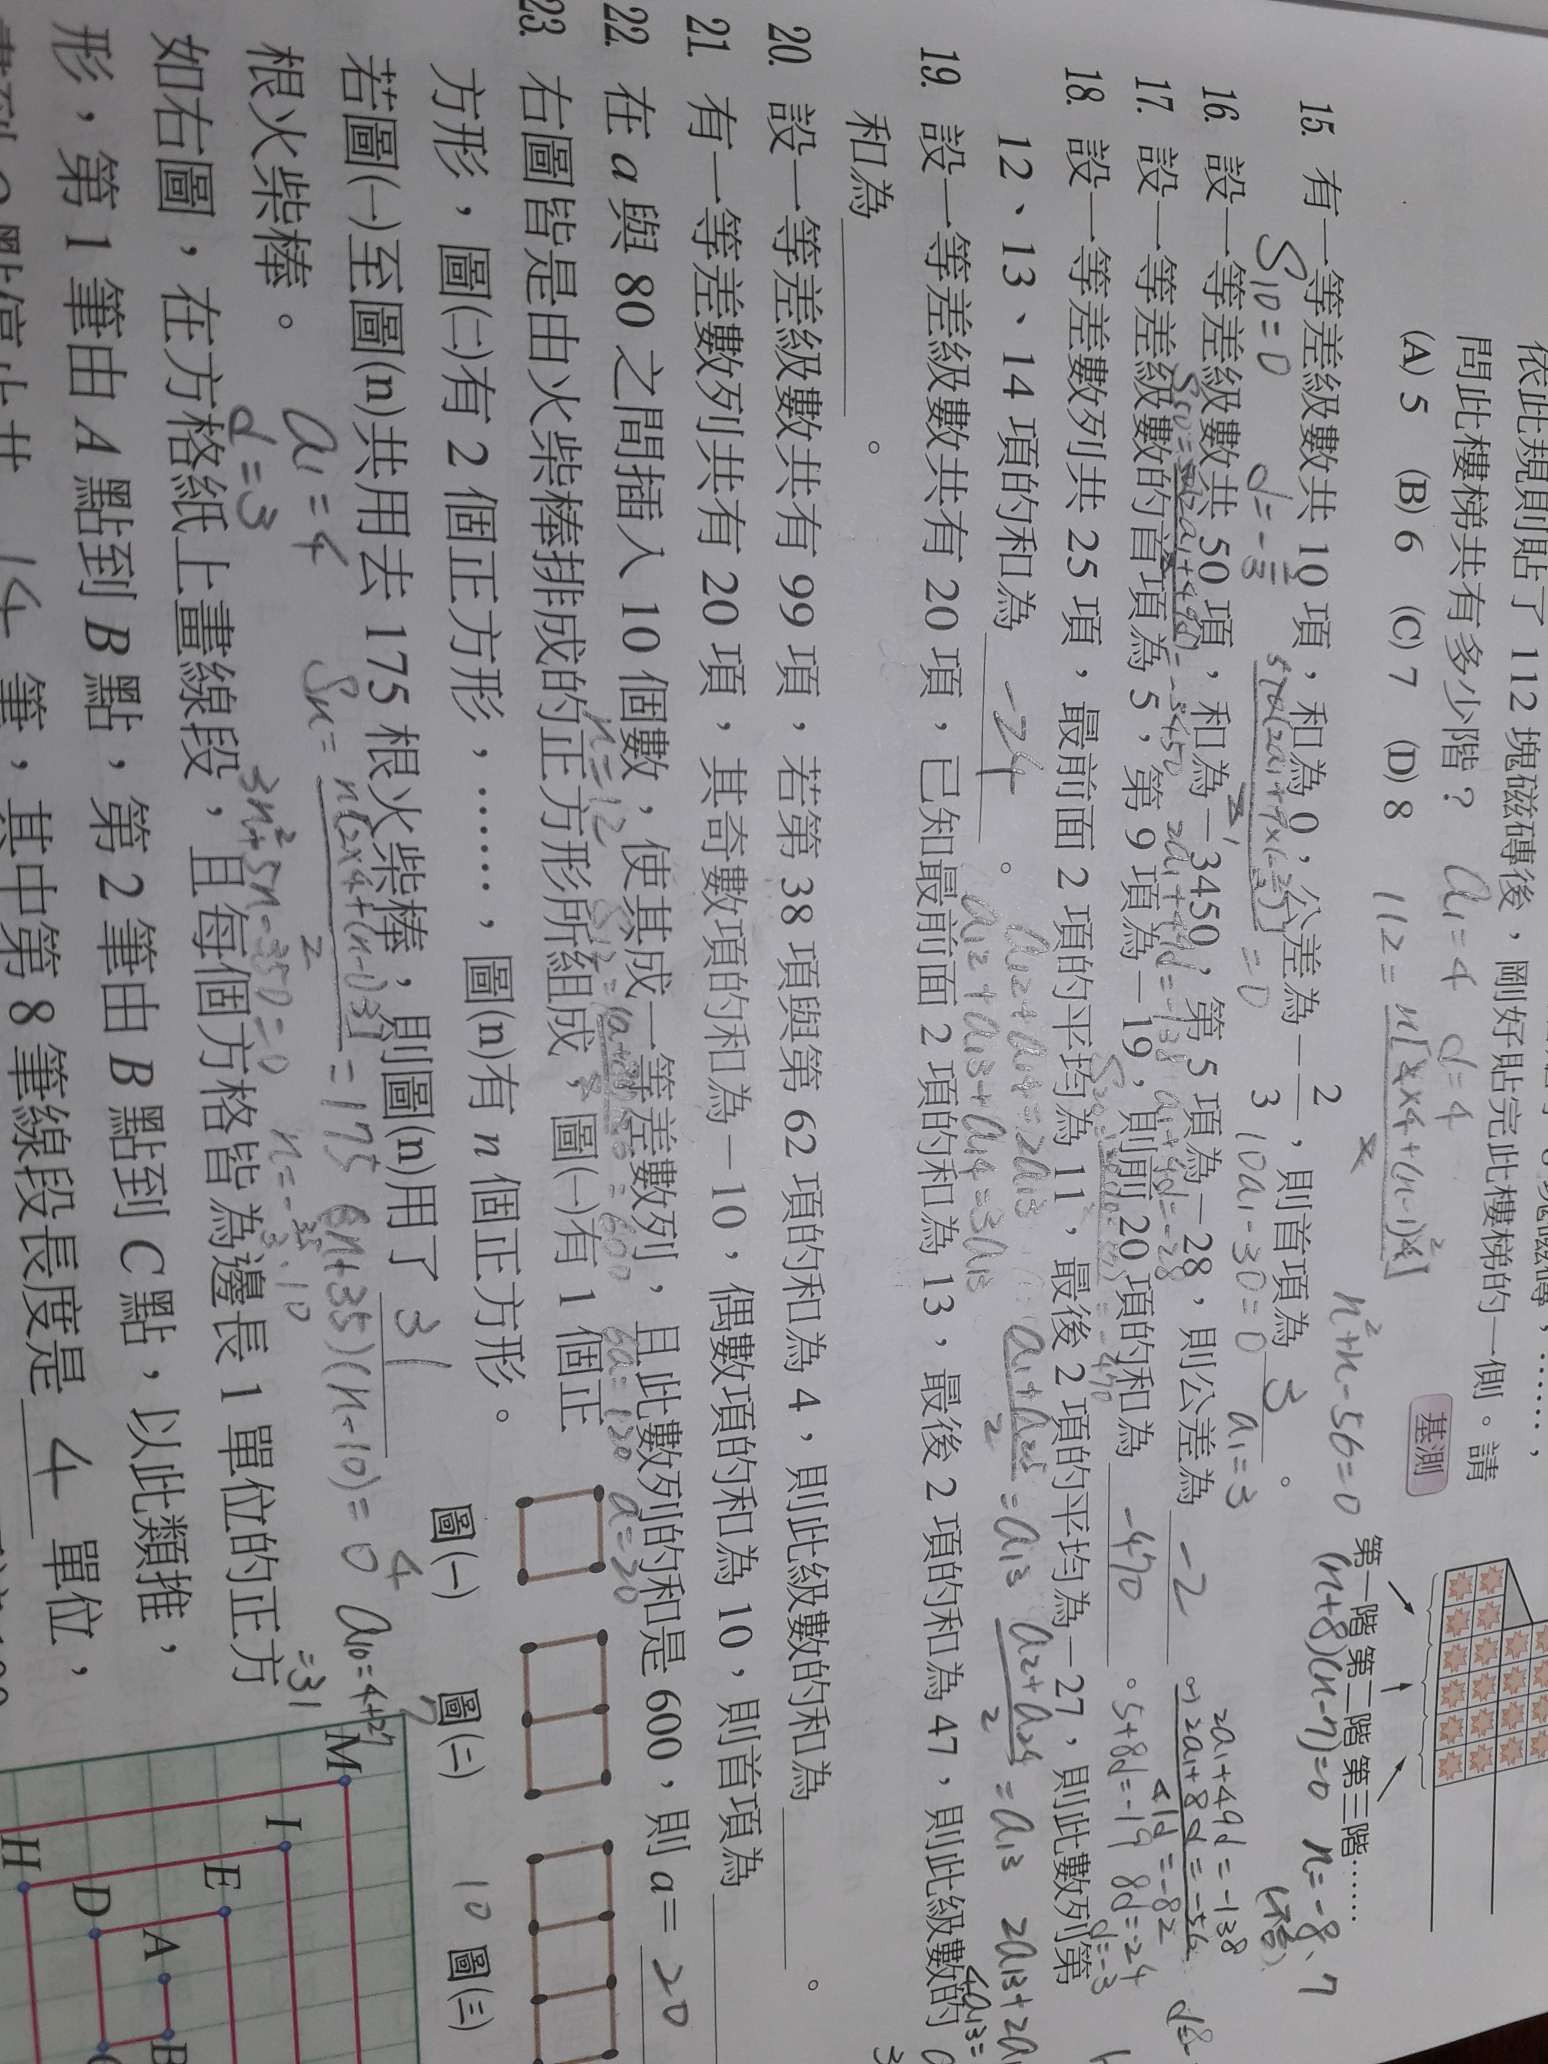 依此規則貼了 112 塊磁磚後，剛好貼完此樓梯的一側。請
問此樓梯共有多少階？ a₁=4 d=4
基測
(A) 5 (B) 6 (C) 7 (D) 8
n²+n-56=0
(n+8)(n-7)=0 n=-8、7
(不合)
第一階 第二階 第三階……
15. 有一等差級數共 10 項，和為 0，公差為 -2/3，則首項為 3 。
S₁₀=0
10a₁-30=0 a₁=3
16. 設一等差級數共 50 項，和為 -3450，第 5 項為 -28，則公差為 -2 。
2a₁+49d=-138
-) 2a₁+8d=-56
41d=-82
17. 設一等差級數的首項為 5，第 9 項為 -19，則前 20 項的和為 -470 。
5+8d=-19 8d=-24
d=-3
18. 設一等差數列共 25 項，最前面 2 項的平均為 11，最後 2 項的平均為 -27，則此數列第
12、13、14 項的和為 -24 。
a₁₂+a₁₄=2a₁₃
a₁₂+a₁₃+a₁₄=3a₁₃
(a₁+a₂₅)/2=a₁₃ (a₂+a₂₄)/2=a₁₃
19. 設一等差級數共有 20 項，已知最前面 2 項的和為 13，最後 2 項的和為 47，則此級數的
和為 。
20. 設一等差級數共有 99 項，若第 38 項與第 62 項的和為 4，則此級數的和為 。
21. 有一等差數列共有 20 項，其奇數項的和為 -10，偶數項的和為 10，則首項為
22. 在 a 與 80 之間插入 10 個數，使其成一等差數列，且此數列的和是 600，則 a= 20
n=12
6a=120 a=20
23. 右圖皆是由火柴棒排成的正方形所組成，圖(一)有 1 個正
方形，圖(二)有 2 個正方形，……，圖(n)有 n 個正方形。
若圖(一)至圖(n)共用去 175 根火柴棒，則圖(n)用了 31
根火柴棒。
圖(一) 圖(二) 圖(三)
4 7 10
a₁=4
d=3
Sn=n[2×4+(n-1)3]/2=175 (3n+35)(n-10)=0 a₁₀=4+27
=31
3n²+5n-350=0 n=-35/3、10
如右圖，在方格紙上畫線段，且每個方格皆為邊長 1 單位的正方
形，第 1 筆由 A 點到 B 點，第 2 筆由 B 點到 C 點，以此類推，
14 筆，其中第 8 筆線段長度是 4 單位，
M
I
E
H
D
A
B